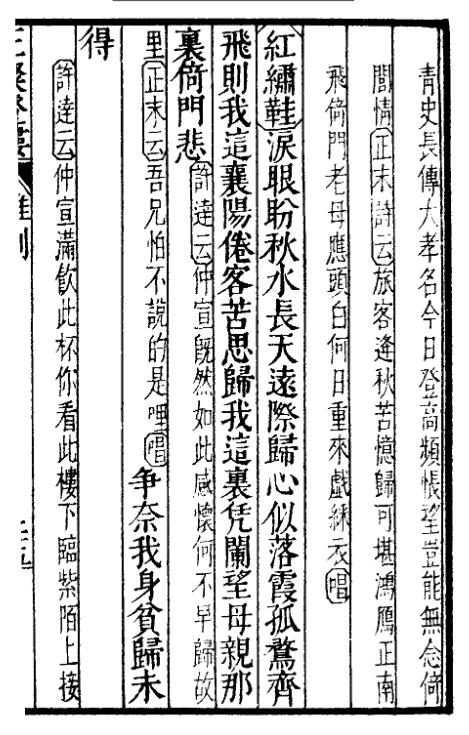 青史長傳大孝名今日登高頻悵望豈能無念倚
閭情正末詩云旅客逢秋苦憶歸可堪鴻鴈正南
飛倚門老母應頭白何日重來戲綵衣唱
紅繡鞋淚眼盼秋水長天遠際歸心似落霞孤鶩齊
飛則我這襄陽倦客苦思歸我這裏凭闌望母親那
裏倚門悲許達云仲宣旣然如此感懷何不早歸故
里正末云吾兄怕不說的是哩唱争奈我身貧歸未
得
許達云仲宣滿飲此杯你看此樓下臨紫陌上接